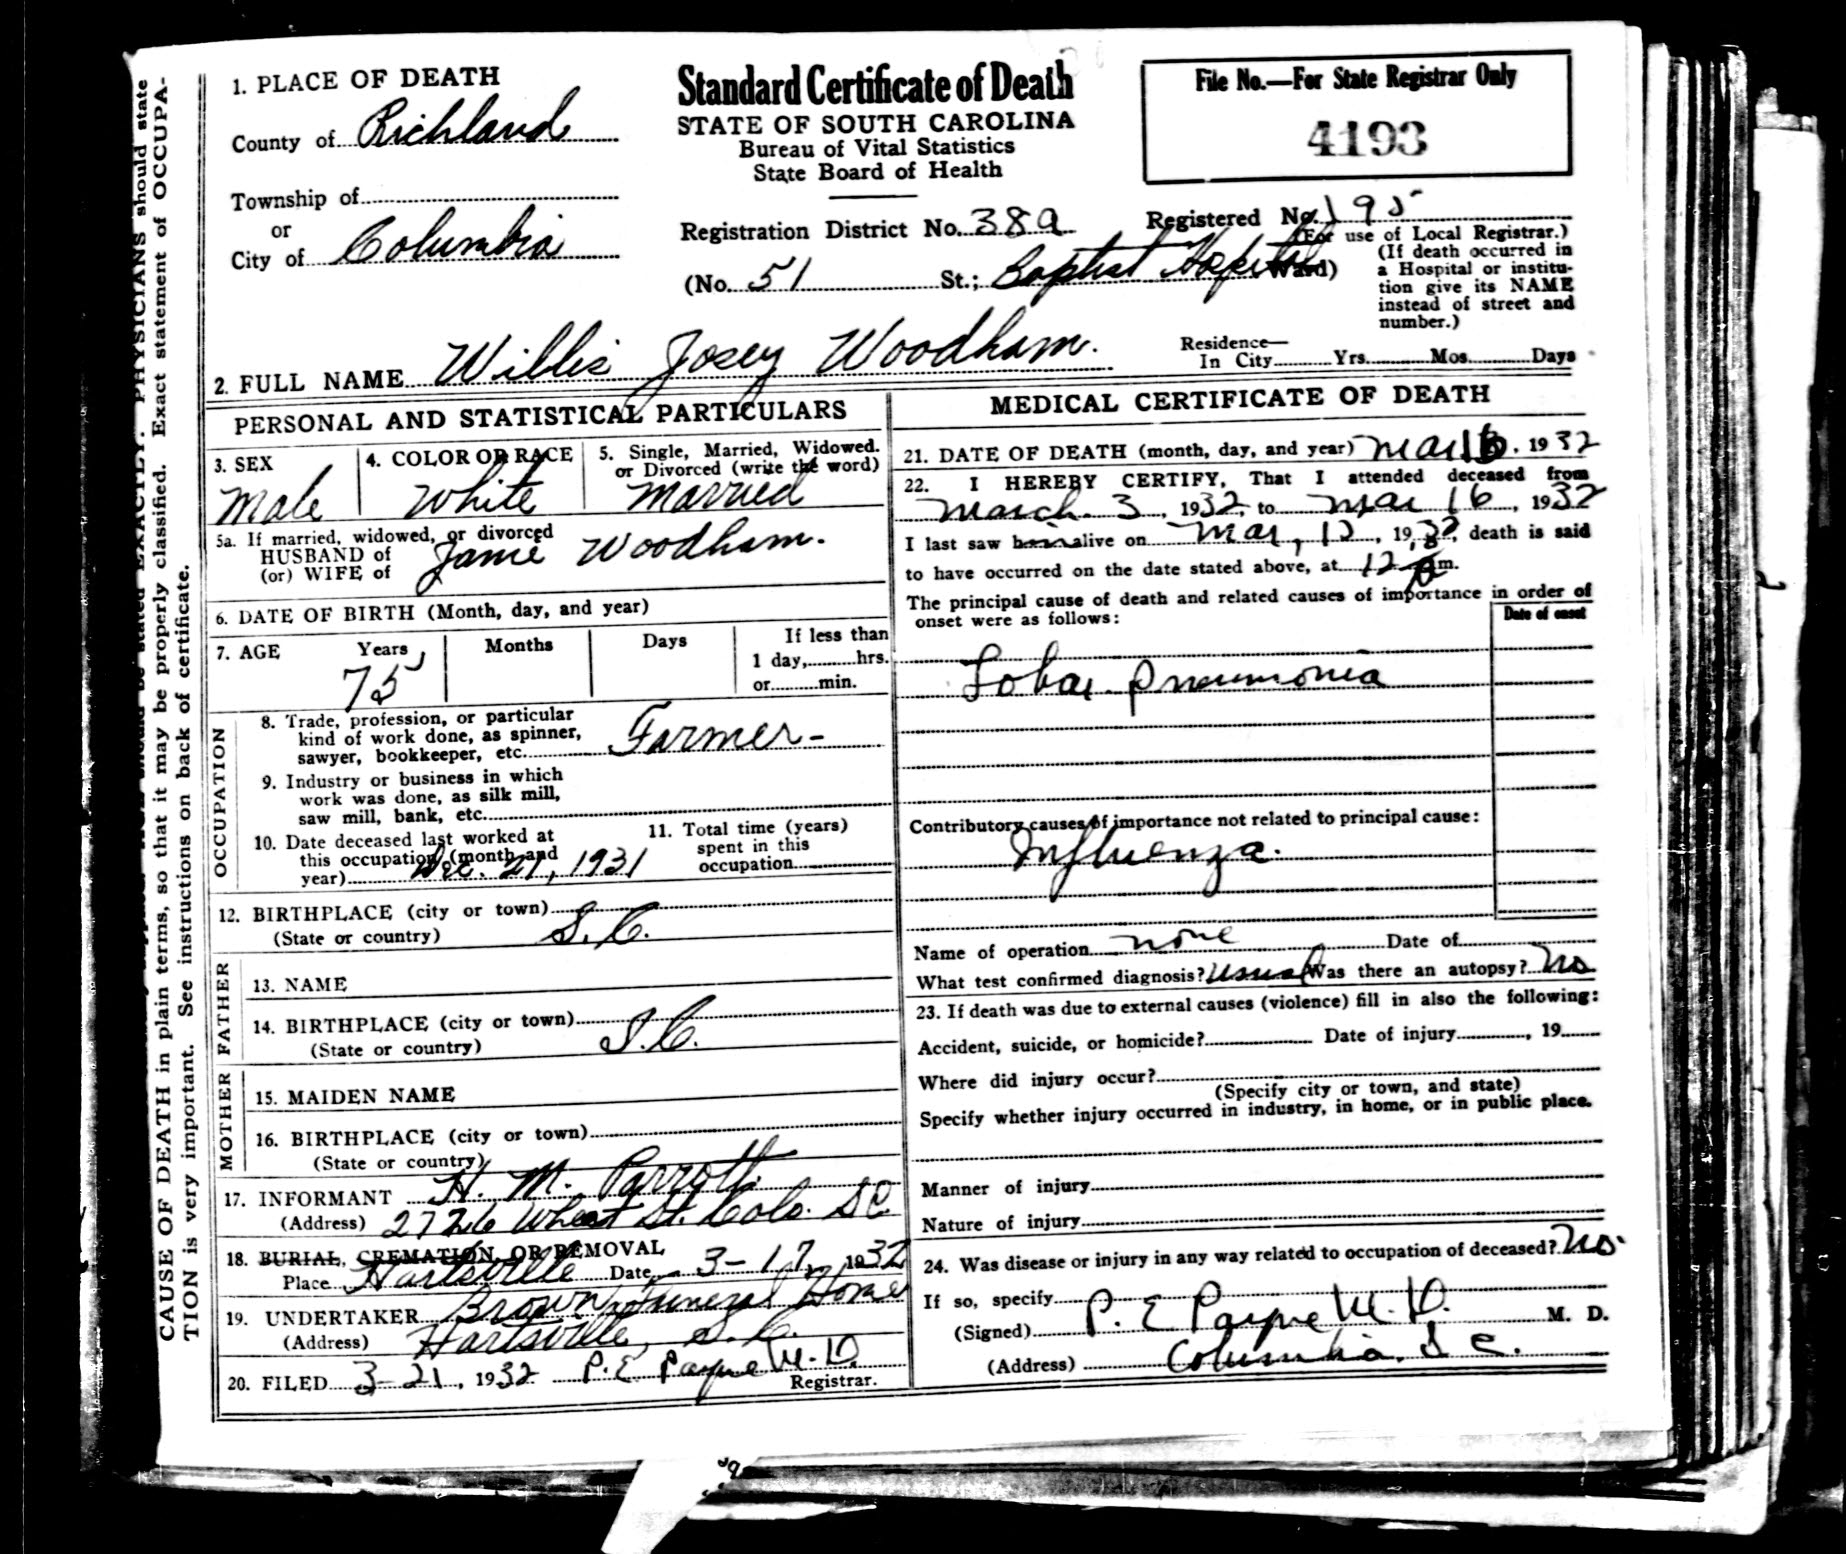 1. PLACE OF DEATH
County of Richland
Township of
or
City of Columbia
Standard Certificate of Death
STATE OF SOUTH CAROLINA
Bureau of Vital Statistics
State Board of Health
File No.—For State Registrar Only
4193
Registration District No. 38a Registered No. 195
(For use of Local Registrar.)
(No. 51 St.; Baptist Hospital Ward)
(If death occurred in
a Hospital or institu-
tion give its NAME
instead of street and
number.)
2. FULL NAME Willis Josey Woodham.
Residence—
In City Yrs. Mos. Days
PERSONAL AND STATISTICAL PARTICULARS
3. SEX
Male
4. COLOR OR RACE
White
5. Single, Married, Widowed.
or Divorced (write the word)
Married
5a. If married, widowed, or divorced
HUSBAND of
(or) WIFE of
Janie Woodham.
6. DATE OF BIRTH (Month, day, and year)
7. AGE Years Months Days If less than
1 day, hrs.
or min.
75
OCCUPATION
8. Trade, profession, or particular
kind of work done, as spinner,
sawyer, bookkeeper, etc. Farmer-
9. Industry or business in which
work was done, as silk mill,
saw mill, bank, etc.
10. Date deceased last worked at
this occupation (month and
year) Dec. 21, 1931
11. Total time (years)
spent in this
occupation
12. BIRTHPLACE (city or town)
(State or country) S.C.
FATHER
13. NAME
14. BIRTHPLACE (city or town)
(State or country) S.C.
MOTHER
15. MAIDEN NAME
16. BIRTHPLACE (city or town)
(State or country)
17. INFORMANT H. M. Parrott
(Address) 2726 Wheat St. Cola. SC
18. BURIAL, CREMATION, OR REMOVAL
Place Hartsville Date 3-17, 1932
19. UNDERTAKER Brown Funeral Home
(Address) Hartsville, S.C.
20. FILED 3-21, 1932 P. E. Payne M.D.
Registrar.
MEDICAL CERTIFICATE OF DEATH
21. DATE OF DEATH (month, day, and year) Mar 16, 1932
22. I HEREBY CERTIFY, That I attended deceased from
March 3, 1932, to Mar 16, 1932
I last saw him alive on Mar, 1932, death is said
to have occurred on the date stated above, at 12 m.
The principal cause of death and related causes of importance in order of
onset were as follows:
Date of onset
Lobar pneumonia
Contributory causes of importance not related to principal cause:
Influenza.
Name of operation none Date of
What test confirmed diagnosis? usual Was there an autopsy? No
23. If death was due to external causes (violence) fill in also the following:
Accident, suicide, or homicide? Date of injury , 19
Where did injury occur?
(Specify city or town, and state)
Specify whether injury occurred in industry, in home, or in public place.
Manner of injury
Nature of injury
24. Was disease or injury in any way related to occupation of deceased? No.
If so, specify
(Signed) P. E. Payne M.D. M. D.
(Address) Columbia. S C.
EXACTLY. PHYSICIANS should state
CAUSE OF DEATH in plain terms, so that it may be properly classified. Exact statement of OCCUPA-
TION is very important. See instructions on back of certificate.